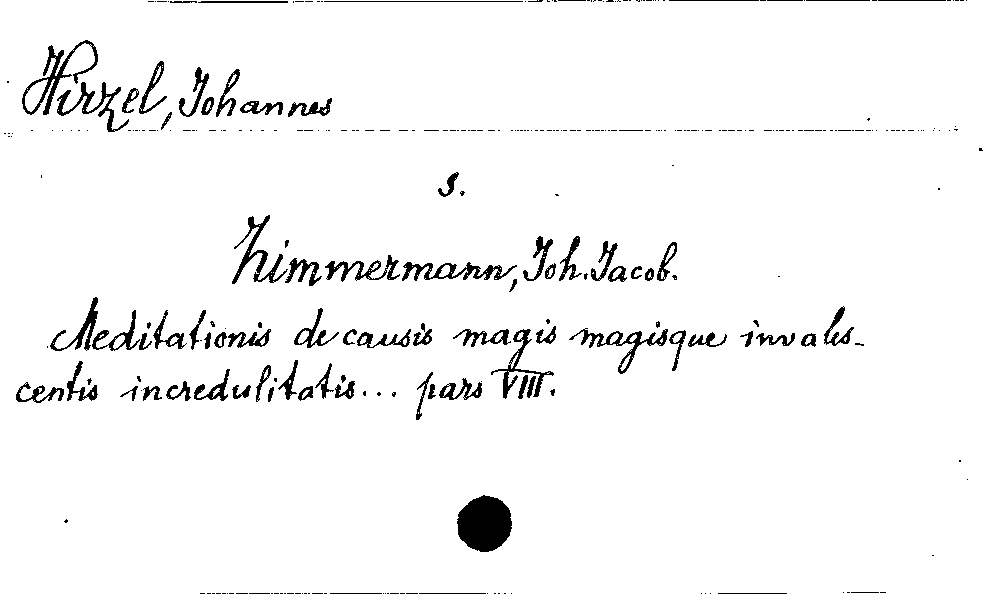 Hirzel, Johannes
s.
Zimmermann, Joh. Jacob.
Meditationis de causis magis magisque invales-
centis incredulitatis... pars VIII.